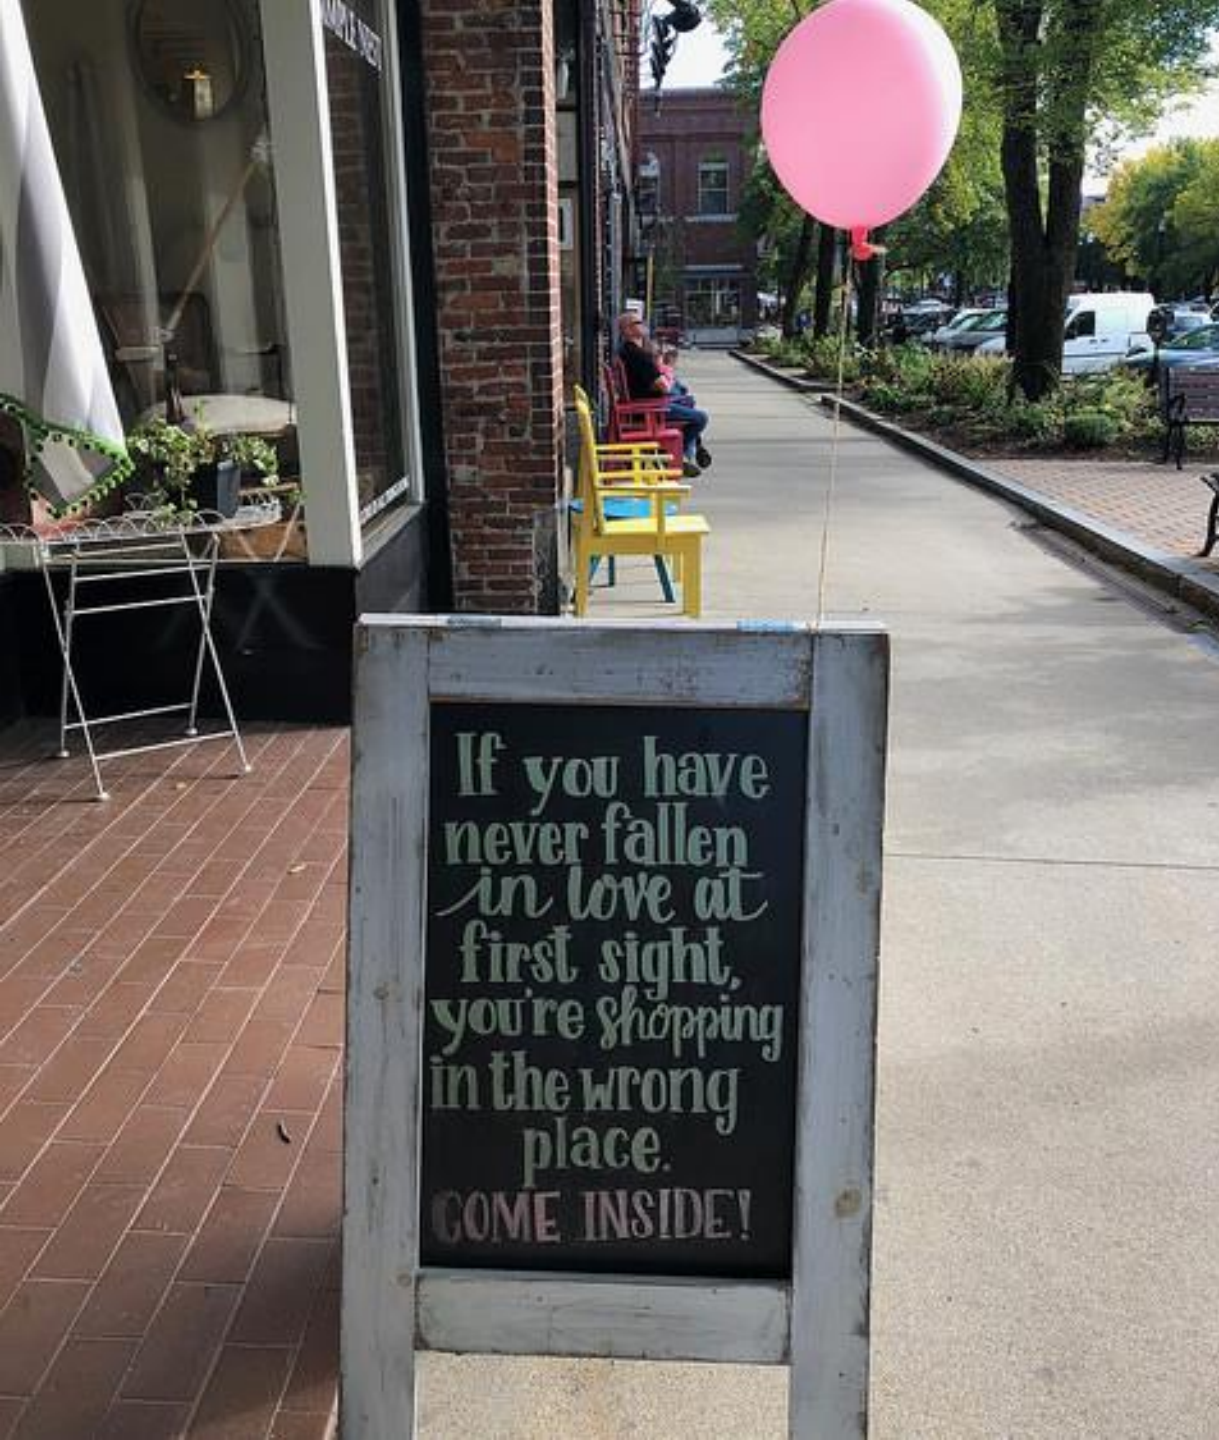 If you have
never fallen
in love at
first sight,
you're shopping
in the wrong
place.
COME INSIDE!